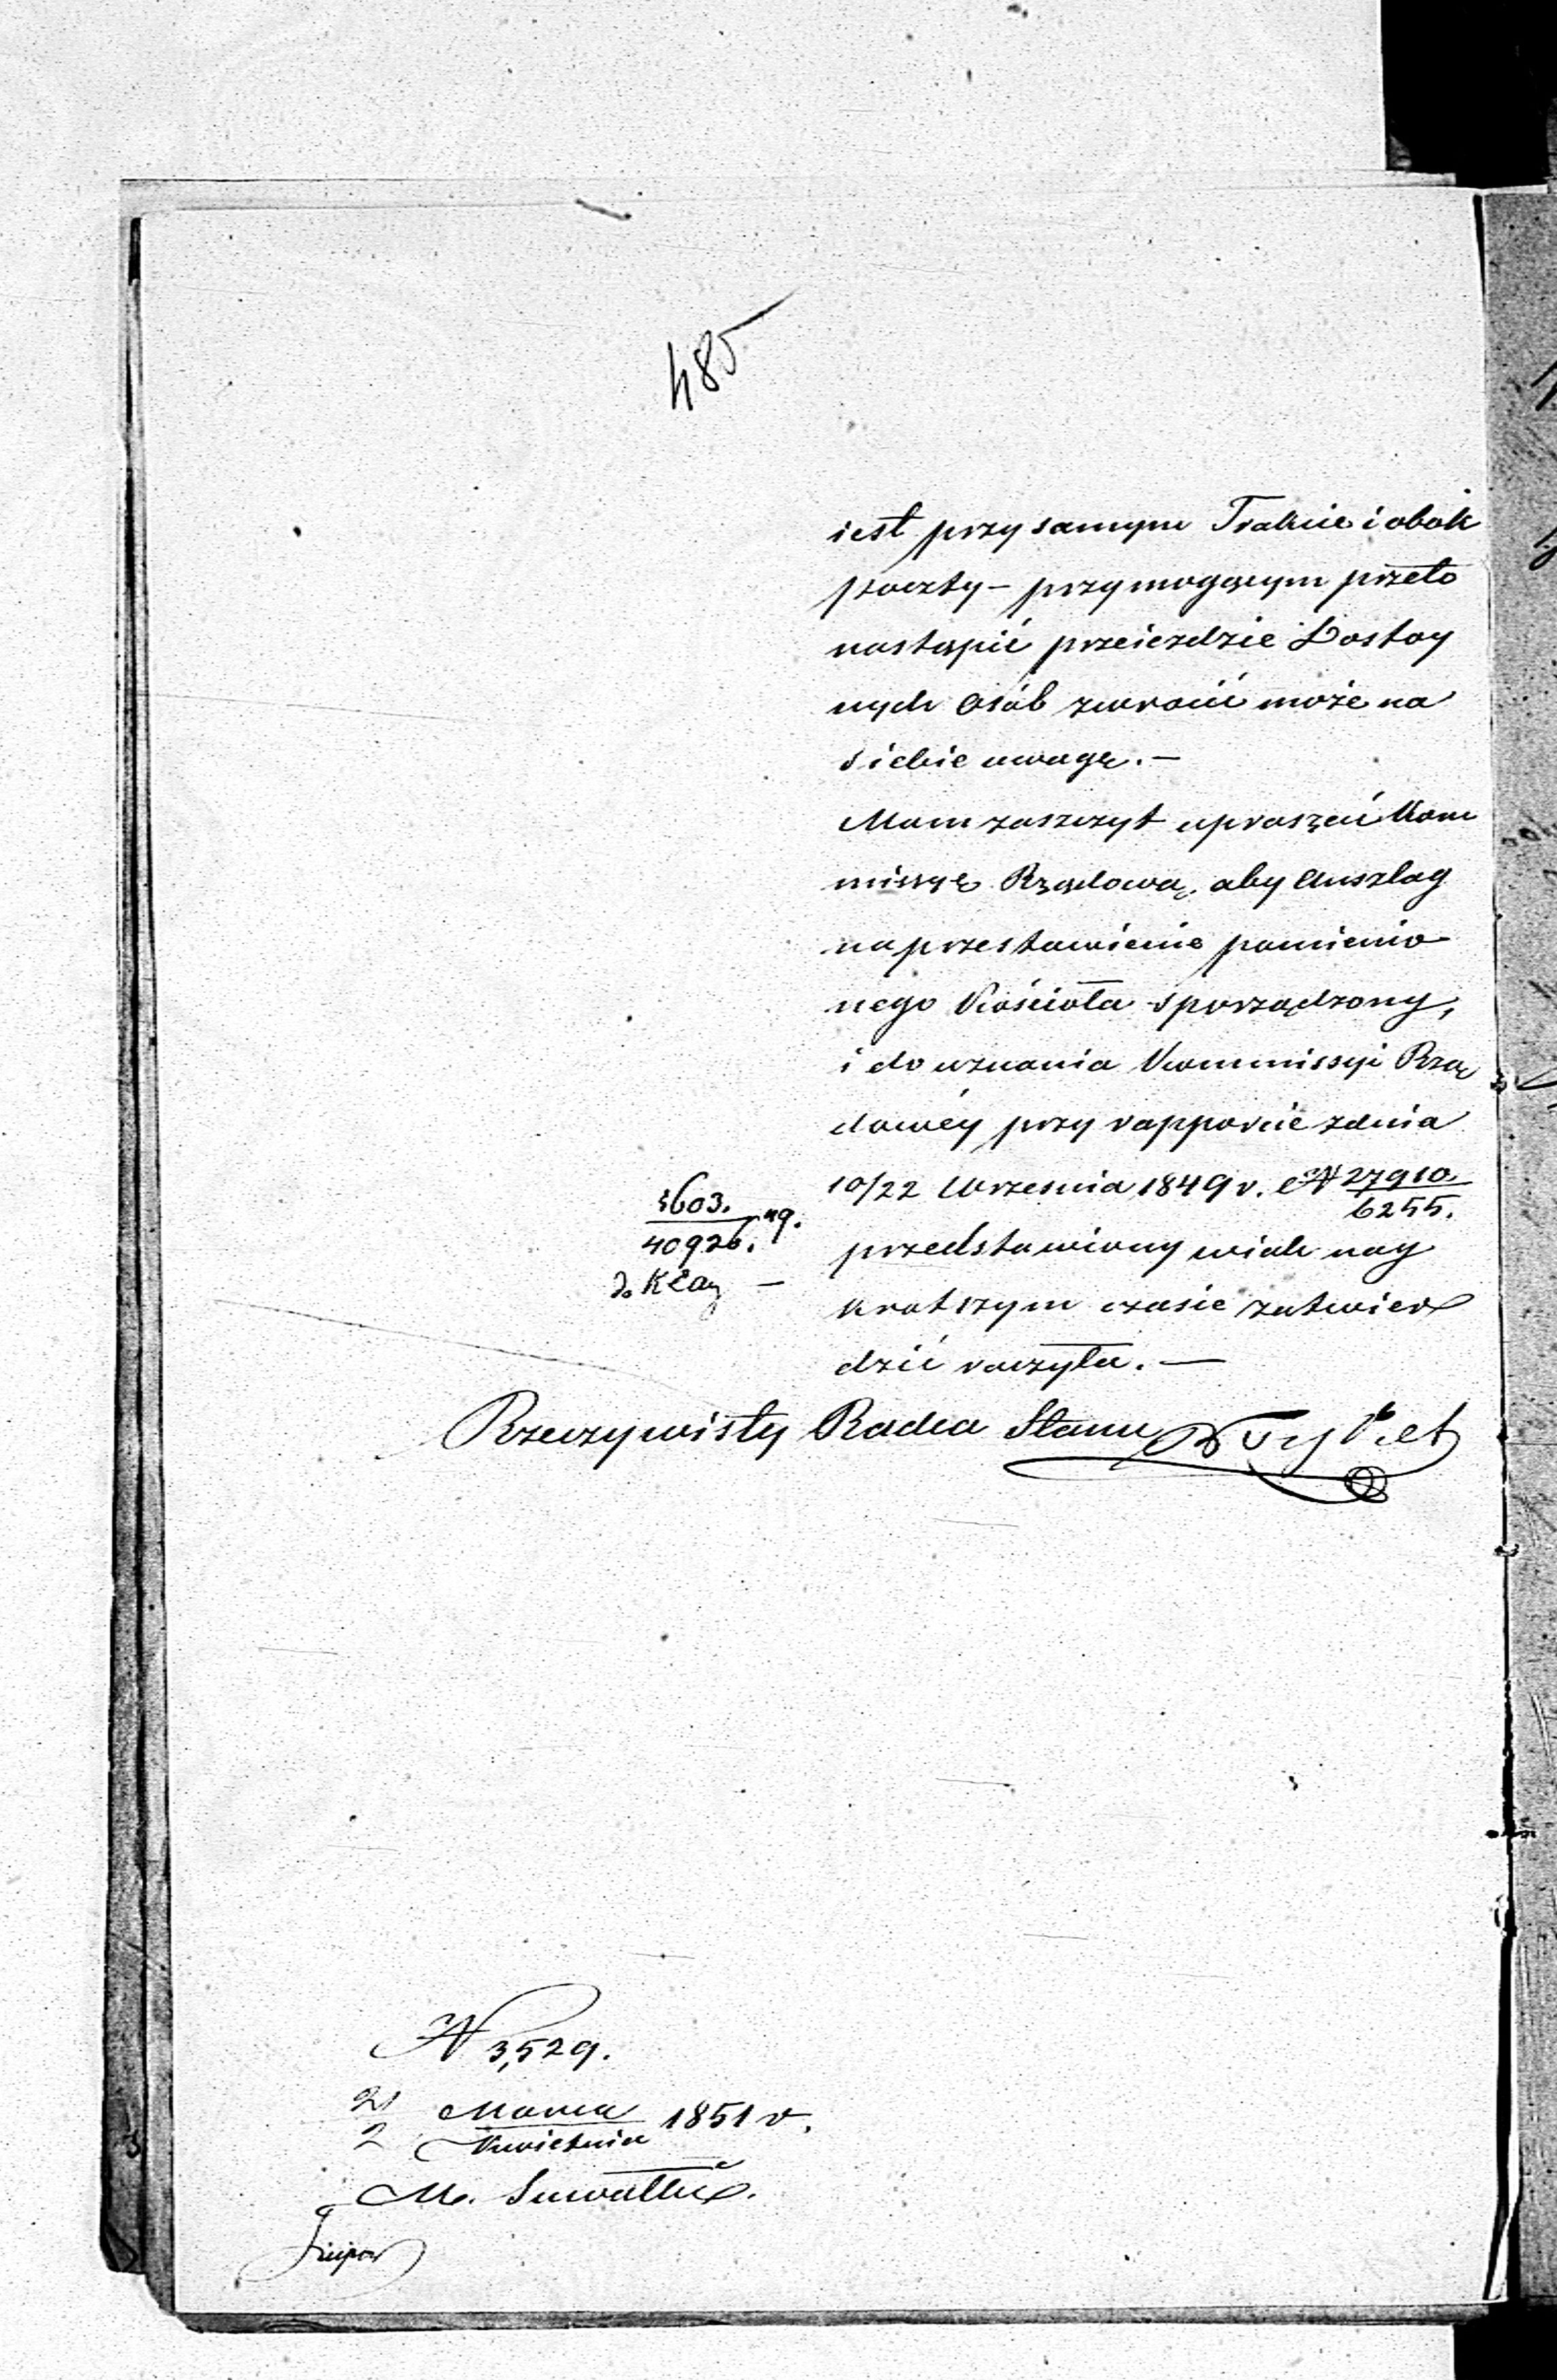 485
iest przy samym Trakcie i obok
poczty – przy mogącym przeto
nastąpić przeiezdzie Dostoy
nych Osób zwrocić może na
siebie uwagę. –
Mam zaszczyt upraszać Kom
missyę Rządową, aby Anszlag
na przestawienie pomienio
nego Kościoła sporządzony,
i do uznania Kommissyi Rzą
dowéy przy rapporcie z dnia
10/22 Września 1849 r. N 27910.
6255.
przedstawiony w iak nay
krotszym czasie zatwier
dzić raczyła. –
5603. 49.
40926.
Rzeczywisty Radca Stanu
N 3,529.
21 Marca 1851 r.
2 Kwietnia
M. Suwałki.